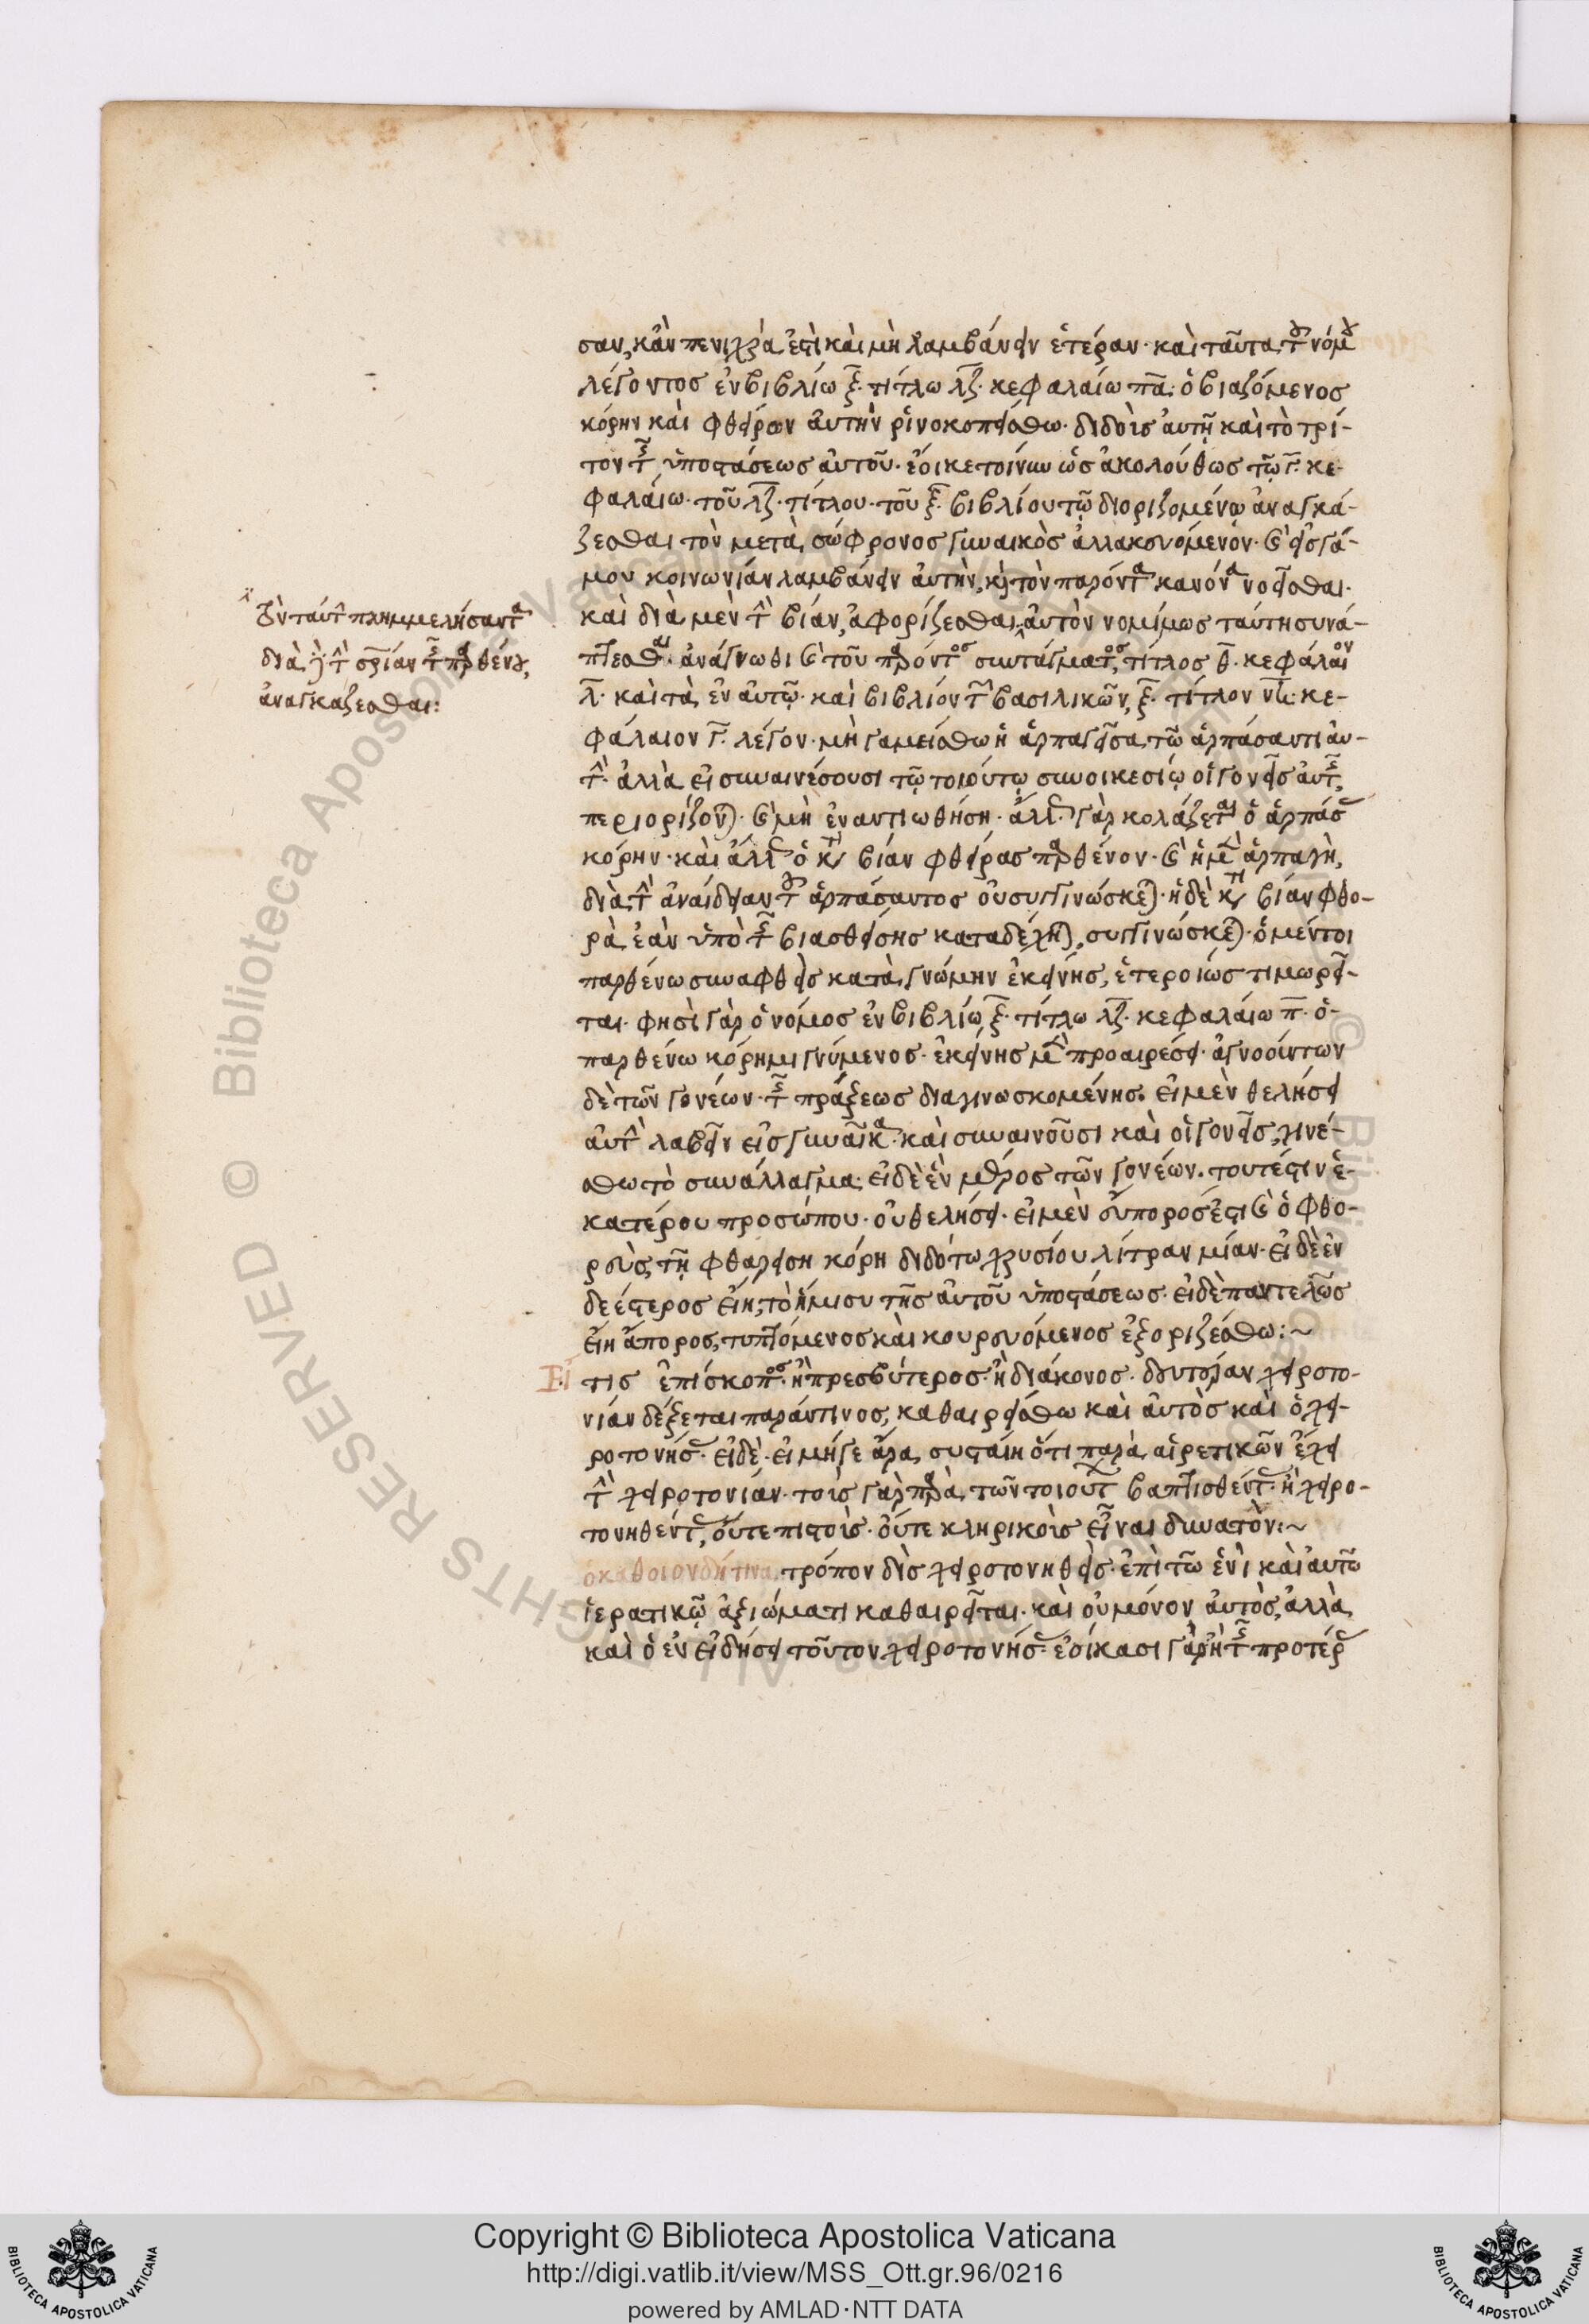 σαν, κἂν πενιχρά ἐστὶ καὶ μὴ λαμβάνειν ἑτέραν· καὶ ταῦτα τοῦ νόμου
λέγοντος ἐν βιβλίω ξ̅· τίτλω λζ̅· κεφαλαίω πα̅· ὁ βιαζόμενος
κόρην καὶ φθείρων αὐτὴν ῥινοκοπείσθω· διδοὺς αὐτῇ καὶ τὸ τρί-
τον τῆς ὑποστάσεως αὐτοῦ· ἔοικε τοίνυν ὡς ἀκολούθως τῷ γ̅· κε-
φαλαίω· τοῦ λζ̅· τίτλου· τοῦ ξ̅· βιβλίου τῷ διοριζομένῳ ἀναγκά-
ζεσθαι τὸν μετὰ σώφρονος γυναικὸς ἁλλακευόμενον· καὶ εἰς γά-
μου κοινωνίαν λαμβάνειν αὐτὴν, καὶ τὸν παρόντα κανόνα νοεῖσθαι·
καὶ διὰ μὲν τὴν βίαν, ἀφορίζεσθαι· αὐτὸν νομίμως ταύτη συνά-
πτεσθαι· ἀνάγνωθι καὶ τοῦ παρόντος συντάγματος, τίτλος θ̅· κεφάλαιον
λ̅· καὶ τὰ ἐν αὐτῷ· καὶ βιβλίον τῶν βασιλικῶν, ξ̅· τίτλον νη̅· κε-
φάλαιον γ̅· λέγον· μὴ γαμείσθω ἡ ἁρπαγεῖσα τῷ ἁρπάσαντι αὐ-
τὴν· ἀλλὰ εἰ συναινέσουσι τῷ τοιούτῳ συνοικεσίῳ οἱ γονεῖς αὐτῆς,
περιορίζονται· καὶ μὴ ἐναντιωθήση· ἄλλως γὰρ κολάζεται ὁ ἁρπάσας
κόρην· καὶ ἄλλως ὁ κατὰ βίαν φθείρας παρθένον· καὶ ἡ μὲν ἁρπαγὴ,
διὰ τὴν ἀναίδειαν τοῦ ἁρπάσαντος οὐ συγγινώσκεται· ἡ δὲ κατὰ βίαν φθο-
ρὰ ἐὰν ὑπὸ τῆς βιασθείσης καταδέχηται, συγγινώσκεται· ὁ μέντοι
παρθένω συναφθεὶς κατὰ γνώμην ἐκείνης, ἑτεροίως τιμωρεῖ-
ται· φησὶ γὰρ ὁ νόμος ἐν βιβλίω ξ̅· τίτλω λζ̅· κεφαλαίω π̅· ὁ
παρθένω κόρη μιγνύμενος· ἐκείνης μὲν προαιρέσει· ἀγνοούντων
δὲ τῶν γονέων· τῆς πράξεως διαγινωσκομένης· εἰ μὲν θελήσει
αὐτὴν λαβεῖν εἰς γυναῖκα· καὶ συναινοῦσι καὶ οἱ γονεῖς, γινέ-
σθω τὸ συνάλλαγμα· εἰ δὲ ἓν μέρος τῶν γονέων· τουτέστιν ἑ-
κατέρου προσώπου· οὐ θελήσει· εἰ μὲν εὔπορος ἐστι καὶ ὁ φθο-
ρεὺς, τῇ φθαρείση κόρη διδότω χρυσίου λίτραν μίαν· εἰ δὲ ἐν
δεέστερος εἴη, τὸ ἥμισυ τῆς αὐτοῦ ὑποστάσεως· εἰ δὲ παντελῶς
εἴη ἄπορος, τυπτόμενος καὶ κουρευόμενος ἐξοριζέσθω:~
Εἴ τις ἐπίσκοπος· ἢ πρεσβύτερος· ἢ διάκονος· δευτέραν χειροτο-
νίαν δέξεται παρά τινος, καθαιρείσθω καὶ αὐτὸς καὶ ὁ χει-
ροτονήσας· εἰ δὲ· εἰ μήγε ἄρα συσταίη ὅτι παρὰ αἱρετικῶν ἔχει
τὴν χειροτονίαν· τοὺς γὰρ παρὰ τῶν τοιούτων βαπτισθέντας· ἢ χειρο-
τονηθέντας, οὔτε πιστοὺς· οὔτε κληρικοὺς εἶναι δυνατὸν:~
ὁ καθ' οιονδήτινα τρόπον δὶς χειροτονηθεὶς· ἐπὶ τῶ ἑνὶ καὶ αὐτῶ
ἱερατικῷ ἀξιώματι καθαιρεῖται· καὶ οὐ μόνον αὐτὸς, ἀλλὰ
καὶ ὁ ἐν εἰδήσει τοῦτον χειροτονήσας· ἐοίκασι γὰρ ἢ τῆς προτέρας
τὸν ταύτην πλημμελήσαντα
διὰ τὴν σωτηρίαν τῆς παρθένου,
ἀναγκάζεσθαι:
© Biblioteca Apostolica Vaticana
ALL RIGHTS RESERVED
Copyright © Biblioteca Apostolica Vaticana
http://digi.vatlib.it/view/MSS_Ott.gr.96/0216
powered by AMLAD·NTT DATA
BIBLIOTECA APOSTOLICA VATICANA
BIBLIOTECA APOSTOLICA VATICANA